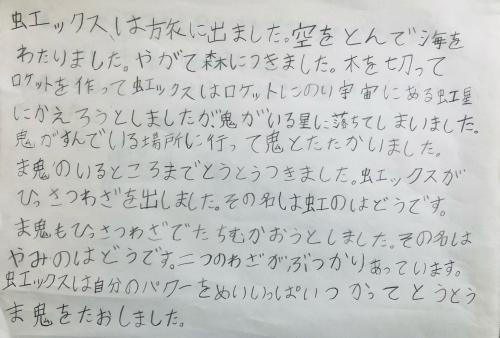 虹エックスは旅に出ました。空をとんで海を
わたりました。やがて森につきました。木を切って
ロケットを作って虹エックスはロケットにのり宇宙にある虹星
にかえろうとしましたが鬼がいる星に落ちてしまいました。
鬼がすんでいる場所に行って鬼とたたかいました。
ま鬼のいるところまでとうとうつきました。虹エックスが
ひっさつわざを出しました。その名は虹のはどうです。
ま鬼もひっさつわざでたちむかおうとしました。その名は
やみのはどうです。二つのわざがぶつかりあっています。
虹エックスは自分のパワーをめいいっぱいつかってとうとう
ま鬼をたおしました。